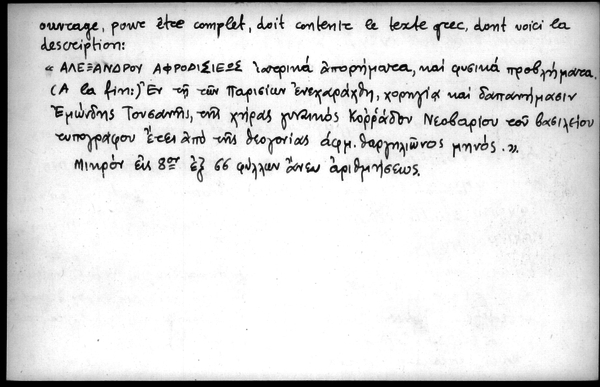 ouvrage, pour être complet, doit contenir le texte grec, dont voici la
description:
« ΑΛΕΞΑΝΔΡΟΥ ΑΦΡΟΔΙΣΙΕΩΣ ἰατρικά ἀπορήματα, καὶ φυσικά προβλήματα.
(A la fin:) Ἐν τῇ τῶν Παρισίων ἐνεχαράχθη, χορηγία καὶ δαπανήμασιν
Ἐμώνδης Τουσανῆς, τῆς χήρας γυναικός Κορράδου Νεοβαρίου τοῦ βασιλείου
τυπογράφου Ἔτει ἀπό τῆς θεογονίας ἀφμ. θαργηλιῶνος μηνός. ».
Μικρόν εἰς 8ον ἐξ 66 φύλλων ἄνευ ἀριθμήσεως.